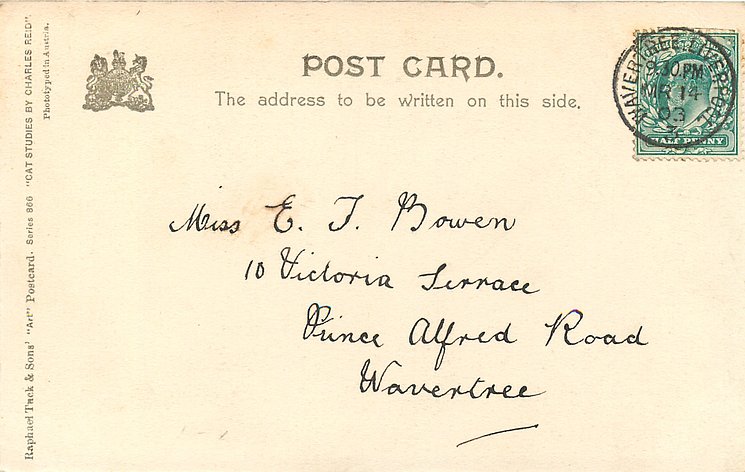 POST CARD.
The address to be written on this side.
WAVERTREE LIVERPOOL
9.30 PM
MR 14
03
HALF PENNY
Miss E. J. Bowen
10 Victoria Terrace
Prince Alfred Road
Wavertree
Raphael Tuck & Sons' "Art" Postcard. Series 866 "CAT STUDIES BY CHARLES REID"
Phototyped in Austria.